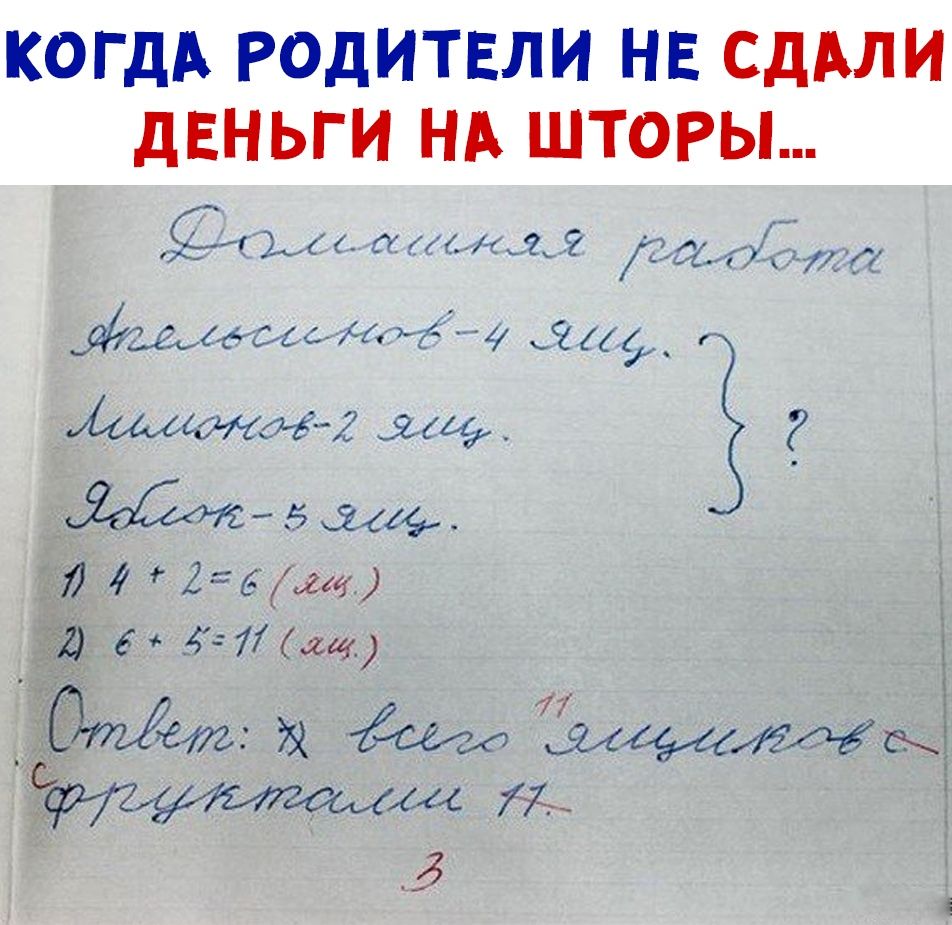 КОГДА РОДИТЕЛИ НЕ СДАЛИ
ДЕНЬГИ НА ШТОРЫ...
Домашняя работа
Апельсинов-4 ящ.
Лимонов-2 ящ. } ?
Яблок-5 ящ.
1) 4 + 2 = 6 (ящ.)
2) 6 + 5 = 11 (ящ.)
Ответ: всего 11 ящиков с
с фруктами 11.
3